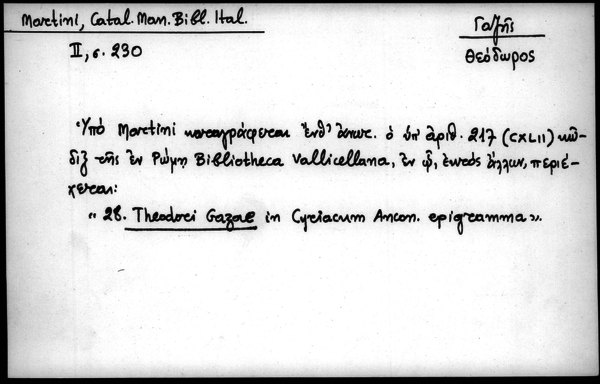 Martini, Catal. Man. Bibl. Ital.
II, σ. 230
Γαζῆς
Θεόδωρος
Ὑπό Martini καταγράφεται ἔνθ' ἀνωτ. ὁ ὑπ' ἀριθ. 217 (CXLII) κῶ-
διξ τῆς ἐν Ρώμῃ Bibliotheca Vallicellana, ἐν ᾧ, ἐκτός ἄλλων, περιέ-
χεται:
« 28. Theodori Gazae in Cyriacum Ancon. epigramma».